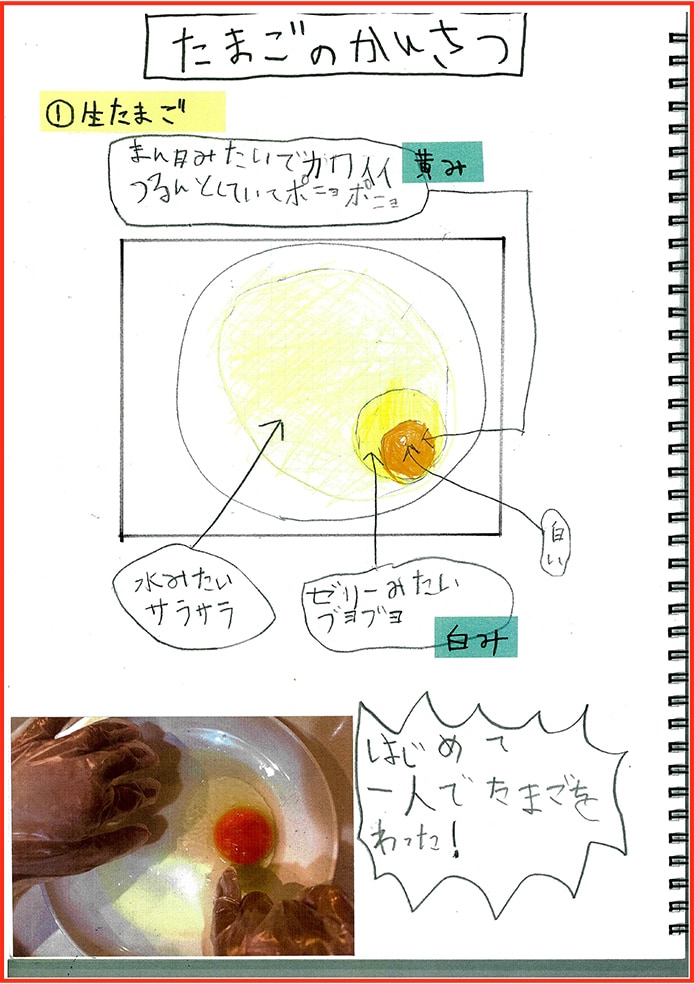 たまごのかんさつ
①生たまご
まん月みたいでカワイイ
つるんとしていてポニョポニョ
黄み
白い
水みたい
サラサラ
ゼリーみたい
ブヨブヨ
白み
はじめて
一人でたまごを
わった!